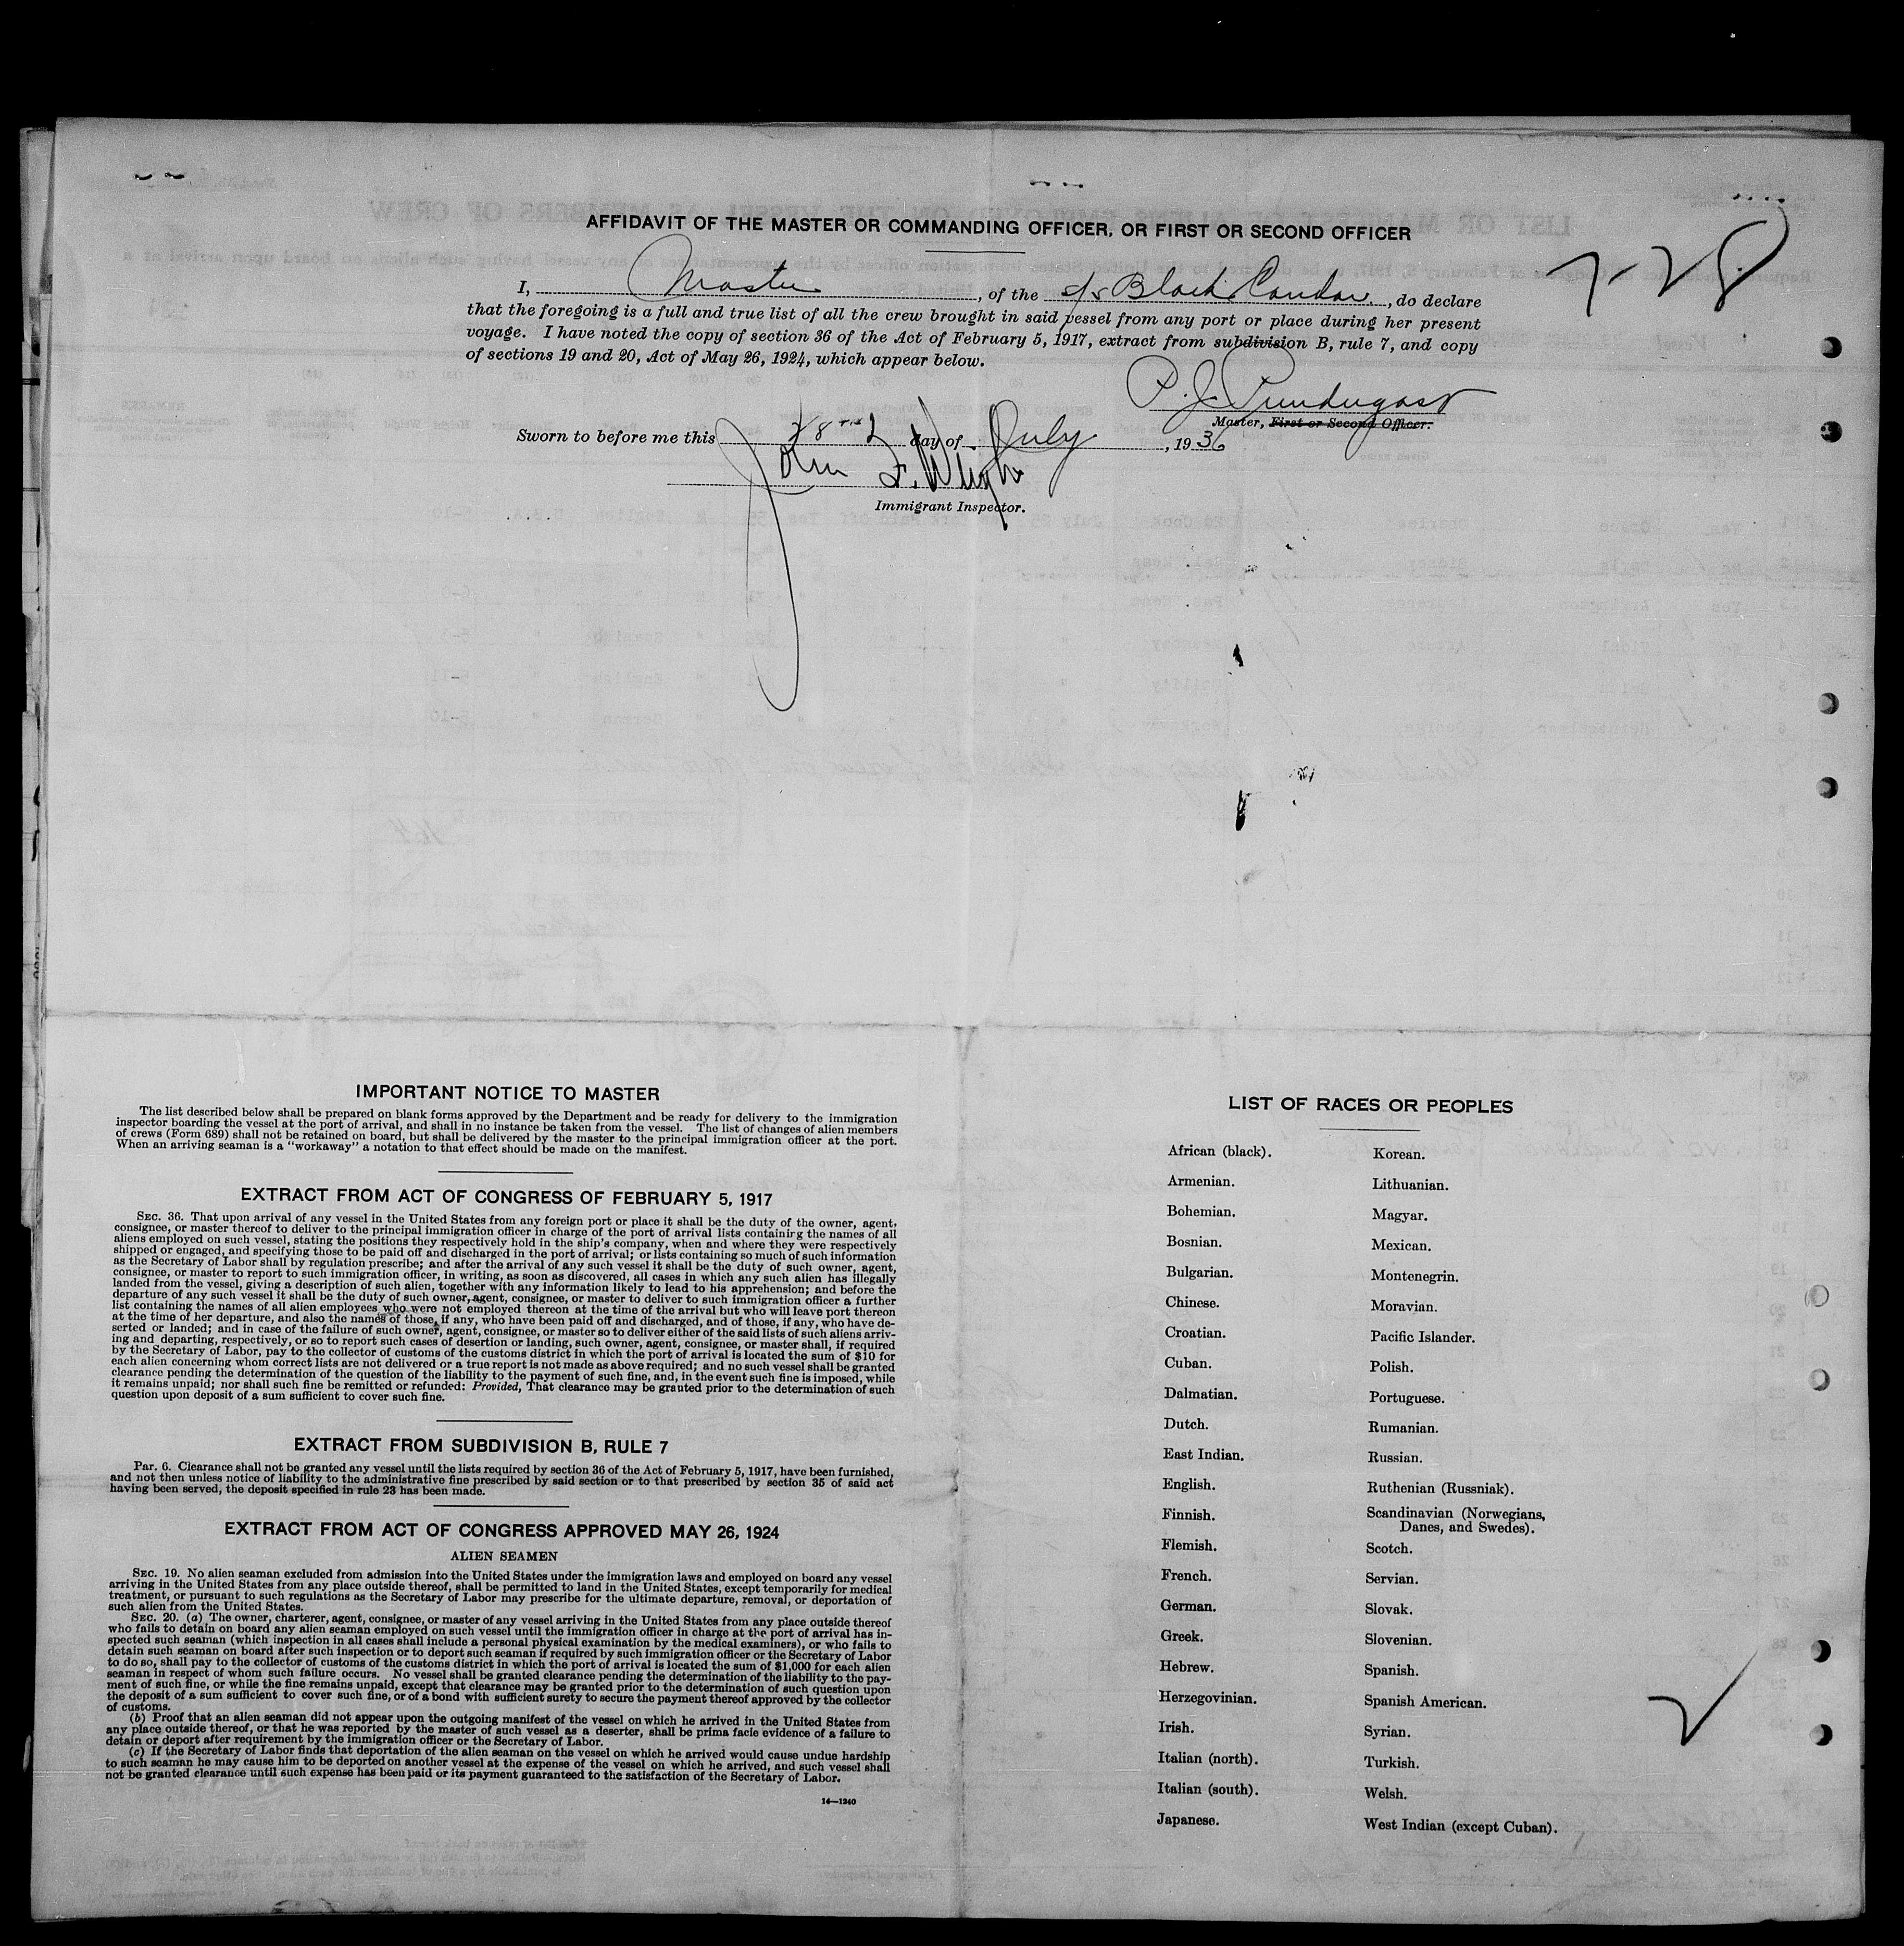 AFFIDAVIT OF THE MASTER OR COMMANDING OFFICER, OR FIRST OR SECOND OFFICER
7-28
I, Master, of the s/s Black Condor, do declare
that the foregoing is a full and true list of all the crew brought in said vessel from any port or place during her present
voyage. I have noted the copy of section 36 of the Act of February 5, 1917, extract from subdivision B, rule 7, and copy
of sections 19 and 20, Act of May 26, 1924, which appear below.
P. J.
Master, First or Second Officer.
Sworn to before me this 28 day of July, 1936
John F.
Immigrant Inspector.
IMPORTANT NOTICE TO MASTER
The list described below shall be prepared on blank forms approved by the Department and be ready for delivery to the immigration
inspector boarding the vessel at the port of arrival, and shall in no instance be taken from the vessel. The list of changes of alien members
of crews (Form 689) shall not be retained on board, but shall be delivered by the master to the principal immigration officer at the port.
When an arriving seaman is a "workaway" a notation to that effect should be made on the manifest.
EXTRACT FROM ACT OF CONGRESS OF FEBRUARY 5, 1917
SEC. 36. That upon arrival of any vessel in the United States from any foreign port or place it shall be the duty of the owner, agent,
consignee, or master thereof to deliver to the principal immigration officer in charge of the port of arrival lists containing the names of all
aliens employed on such vessel, stating the positions they respectively hold in the ship's company, when and where they were respectively
shipped or engaged, and specifying those to be paid off and discharged in the port of arrival; or lists containing so much of such information
as the Secretary of Labor shall by regulation prescribe; and after the arrival of any such vessel it shall be the duty of such owner, agent,
consignee, or master to report to such immigration officer, in writing, as soon as discovered, all cases in which any such alien has illegally
landed from the vessel, giving a description of such alien, together with any information likely to lead to his apprehension; and before the
departure of any such vessel it shall be the duty of such owner, agent, consignee, or master to deliver to such immigration officer a further
list containing the names of all alien employees who were not employed thereon at the time of the arrival but who will leave port thereon
at the time of her departure, and also the names of those, if any, who have been paid off and discharged, and of those, if any, who have de-
serted or landed; and in case of the failure of such owner, agent, consignee, or master so to deliver either of the said lists of such aliens arriv-
ing and departing, respectively, or so to report such cases of desertion or landing, such owner, agent, consignee, or master shall, if required
by the Secretary of Labor, pay to the collector of customs of the customs district in which the port of arrival is located the sum of $10 for
each alien concerning whom correct lists are not delivered or a true report is not made as above required; and no such vessel shall be granted
clearance pending the determination of the question of the liability to the payment of such fine, and, in the event such fine is imposed, while
it remains unpaid; nor shall such fine be remitted or refunded: Provided, That clearance may be granted prior to the determination of such
question upon deposit of a sum sufficient to cover such fine.
EXTRACT FROM SUBDIVISION B, RULE 7
PAR. 6. Clearance shall not be granted any vessel until the lists required by section 36 of the Act of February 5, 1917, have been furnished,
and not then unless notice of liability to the administrative fine prescribed by said section or to that prescribed by section 35 of said act
having been served, the deposit specified in rule 23 has been made.
EXTRACT FROM ACT OF CONGRESS APPROVED MAY 26, 1924
ALIEN SEAMEN
SEC. 19. No alien seaman excluded from admission into the United States under the immigration laws and employed on board any vessel
arriving in the United States from any place outside thereof, shall be permitted to land in the United States, except temporarily for medical
treatment, or pursuant to such regulations as the Secretary of Labor may prescribe for the ultimate departure, removal, or deportation of
such alien from the United States.
SEC. 20. (a) The owner, charterer, agent, consignee, or master of any vessel arriving in the United States from any place outside thereof
who fails to detain on board any alien seaman employed on such vessel until the immigration officer in charge at the port of arrival has in-
spected such seaman (which inspection in all cases shall include a personal physical examination by the medical examiners), or who fails to
detain such seaman on board after such inspection or to deport such seaman if required by such immigration officer or the Secretary of Labor
to do so, shall pay to the collector of customs of the customs district in which the port of arrival is located the sum of $1,000 for each alien
seaman in respect of whom such failure occurs. No vessel shall be granted clearance pending the determination of the liability to the pay-
ment of such fine, or while the fine remains unpaid, except that clearance may be granted prior to the determination of such question upon
the deposit of a sum sufficient to cover such fine, or of a bond with sufficient surety to secure the payment thereof approved by the collector
of customs.
(b) Proof that an alien seaman did not appear upon the outgoing manifest of the vessel on which he arrived in the United States from
any place outside thereof, or that he was reported by the master of such vessel as a deserter, shall be prima facie evidence of a failure to
detain or deport after requirement by the immigration officer or the Secretary of Labor.
(c) If the Secretary of Labor finds that deportation of the alien seaman on the vessel on which he arrived would cause undue hardship
to such seaman he may cause him to be deported on another vessel at the expense of the vessel on which he arrived, and such vessel shall
not be granted clearance until such expense has been paid or its payment guaranteed to the satisfaction of the Secretary of Labor.
14—1240
LIST OF RACES OR PEOPLES
African (black).
Armenian.
Bohemian.
Bosnian.
Bulgarian.
Chinese.
Croatian.
Cuban.
Dalmatian.
Dutch.
East Indian.
English.
Finnish.
Flemish.
French.
German.
Greek.
Hebrew.
Herzegovinian.
Irish.
Italian (north).
Italian (south).
Japanese.
Korean.
Lithuanian.
Magyar.
Mexican.
Montenegrin.
Moravian.
Pacific Islander.
Polish.
Portuguese.
Rumanian.
Russian.
Ruthenian (Russniak).
Scandinavian (Norwegians,
Danes, and Swedes).
Scotch.
Servian.
Slovak.
Slovenian.
Spanish.
Spanish American.
Syrian.
Turkish.
Welsh.
West Indian (except Cuban).